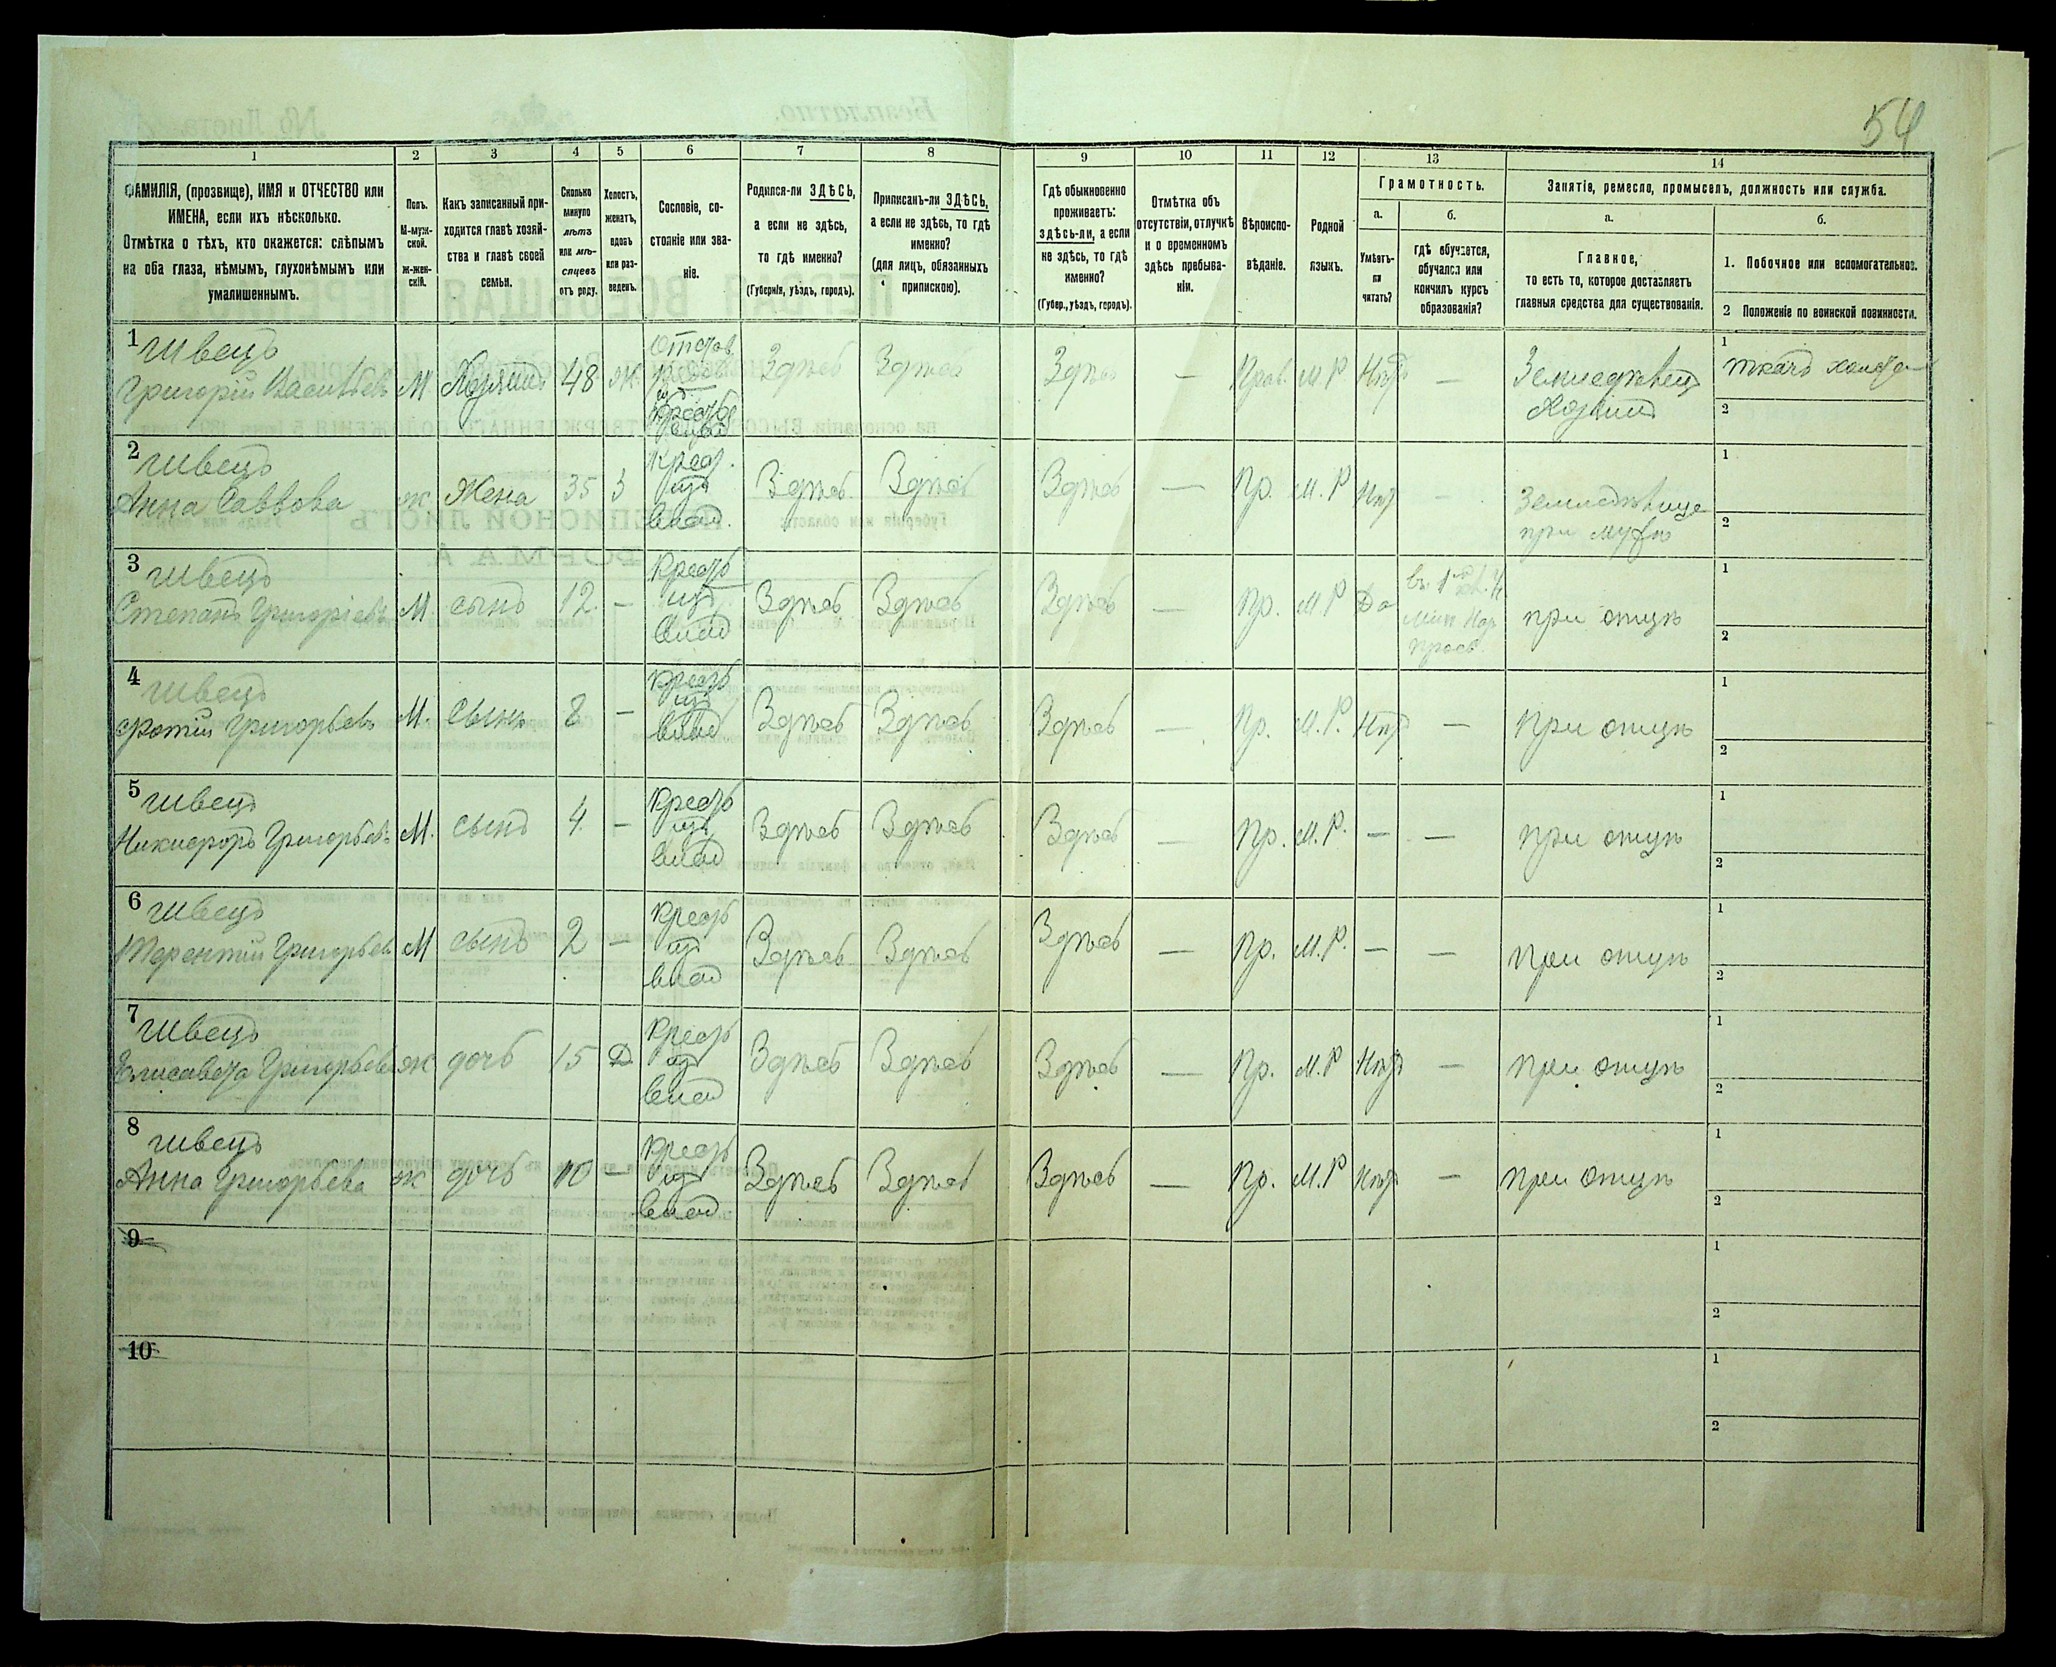 54
1 2 3 4 5 6 7 8 9 10 11 12 13 14
ФАМИЛІЯ, (прозвище), ИМЯ и ОТЧЕСТВО или
ИМЕНА, если ихъ нѣсколько.
Отмѣтка о тѣхъ, кто окажется: слѣпымъ
на оба глаза, нѣмымъ, глухонѣмымъ или
умалишеннымъ.
Полъ.
М-муж-
ской.
Ж-жен-
скій.
Какъ записанный при-
ходится главѣ хозяй-
ства и главѣ своей
семьи.
Сколько
минуло
лѣтъ
или мѣ-
сяцевъ
отъ роду.
Холостъ,
женатъ,
вдовъ
или раз-
веденъ.
Сословіе, со-
стояніе или зва-
ніе.
Родился-ли ЗДѢСЬ,
а если не здѣсь,
то гдѣ именно?
(Губернія, уѣздъ, городъ).
Приписанъ-ли ЗДѢСЬ,
а если не здѣсь, то гдѣ
именно?
(для лицъ, обязанныхъ
припискою).
Гдѣ обыкновенно
проживаетъ:
здѣсь-ли, а если
не здѣсь, то гдѣ
именно?
(Губер., уѣздъ, городъ).
Отмѣтка объ
отсутствіи, отлучкѣ
и о временномъ
здѣсь пребыва-
ніи.
Вѣроиспо-
вѣданіе.
Родной
языкъ.
Грамотность.
а.
Умѣетъ-
ли
читать?
б.
гдѣ обучается,
обучался или
кончилъ курсъ
образованія?
Занятіе, ремесло, промыселъ, должность или служба.
а.
Главное,
то есть то, которое доставляетъ
главныя средства для существованія.
б.
1. Побочное или вспомогательное.
2 Положеніе по воинской повинности.
1 Швецъ
Григорій Васильевъ М Хозяинъ 48 Ж. Отстав. Здѣсь Здѣсь Здѣсь — Прав. М Р Нѣтъ — Земледѣлец Хозяинъ 1 ткачъ 2
2 Швецъ
Анна Саввова ж. Жена 35 З Крест. из влад. Здѣсь Здѣсь Здѣсь — Пр. М. Р Нѣт — при мужѣ 1 2
3 Швецъ
Степанъ Григоріевъ М. сынъ 12. — Крестъ из влад Здѣсь Здѣсь Здѣсь — Пр. М Р Да Мин Нар Просв. при отцѣ 1 2
4 Швецъ
Фотій Григорьевъ М. сынъ 8 — Крестъ из влад Здѣсь Здѣсь Здѣсь — Пр. М. Р. Нѣт — при отцѣ 1 2
5 Швецъ
Никифоръ Григорьевъ М. сынъ 4. — Крестъ из влад Здѣсь Здѣсь Здѣсь — Пр. М. Р. — — при отцѣ 1 2
6 Швецъ
Терентій Григорьевъ М сынъ 2 — Крестъ из влад Здѣсь Здѣсь Здѣсь — Пр. М. Р. — — при отцѣ 1 2
7 Швецъ
Елисавета Григорьева Ж дочь 15 Д Крестъ из влад Здѣсь Здѣсь Здѣсь — Пр. М. Р Нѣтъ — при отцѣ 1 2
8 Швецъ
Анна Григорьева Ж дочь 10 — Крестъ из влад Здѣсь Здѣсь Здѣсь — Пр. М. Р Нѣт — при отцѣ 1 2
9 1 2
10 1 2